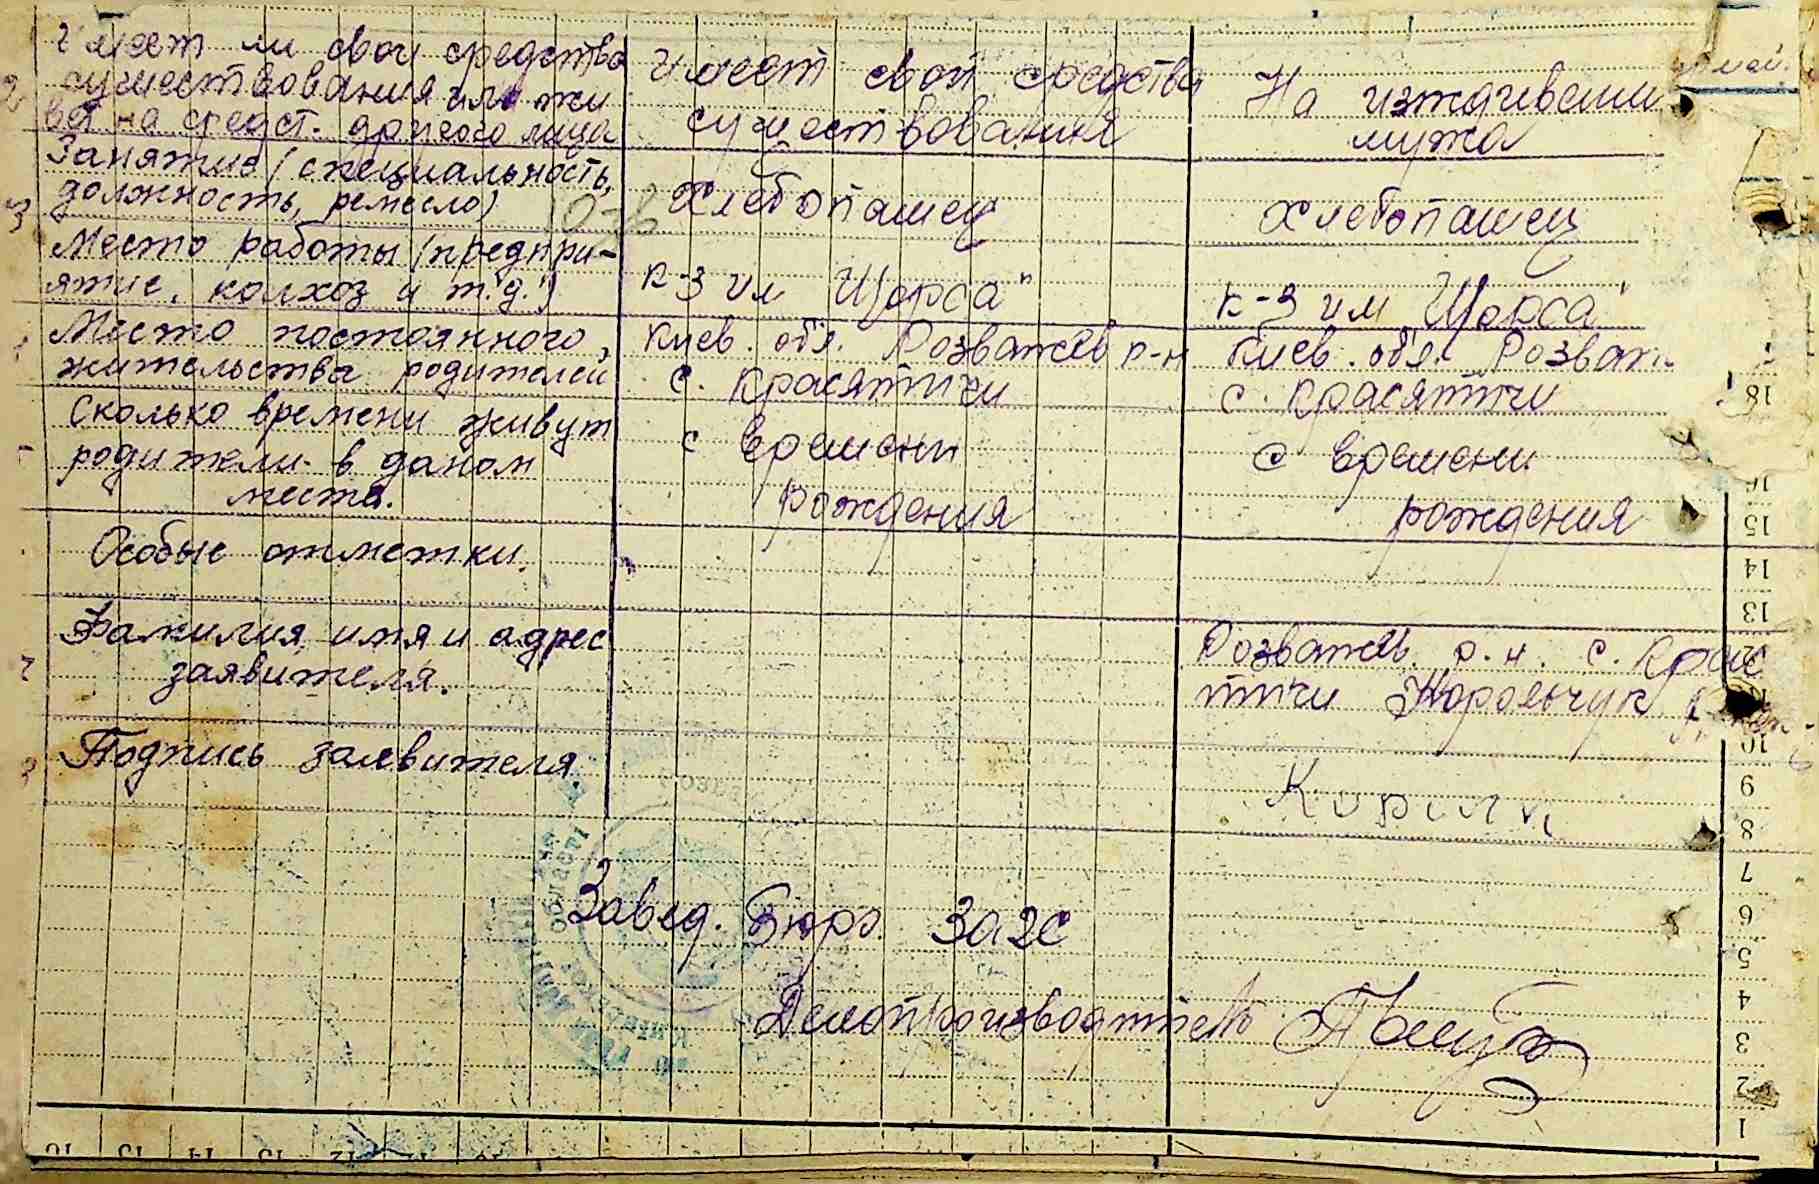 Имеет ли свои средства
существования или жи
вет на средст. другого лица
Имеет свои средства
существования
На иждивении
мужа
Занятие (специальность,
должность, ремесло)
Хлебопашец
Хлебопашец
Место работы (предпри-
ятие, колхоз и т.д.)
к-з им Щорса"
к-з им Щорса"
Место постоянного
жительства родителей
Киев. обл. Розважев р-н
с. Красятичи
Киев. обл. Розваж
с. Красятичи
Сколько времени живут
родители в даном
месте.
с времени
рождения
с времени
рождения
Особые отметки.
Фамилия, имя и адрес
заявителя.
Розважев. р.н. с. Крася
тичи Корольчук
Подпись заявителя
Завед. Бюро Загс
Делопроизводитель
18
16
15
14
13
12
10
9
8
7
6
5
4
3
2
1